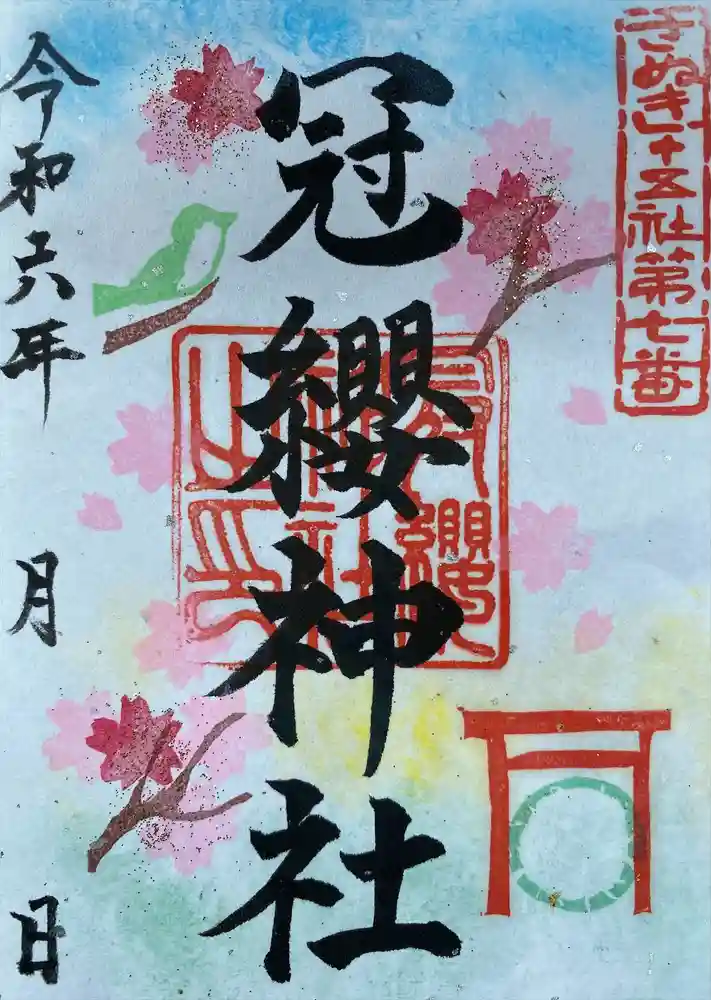 さぬき十五社第七番
冠纓神社
冠纓神社之印
令和六年
月
日